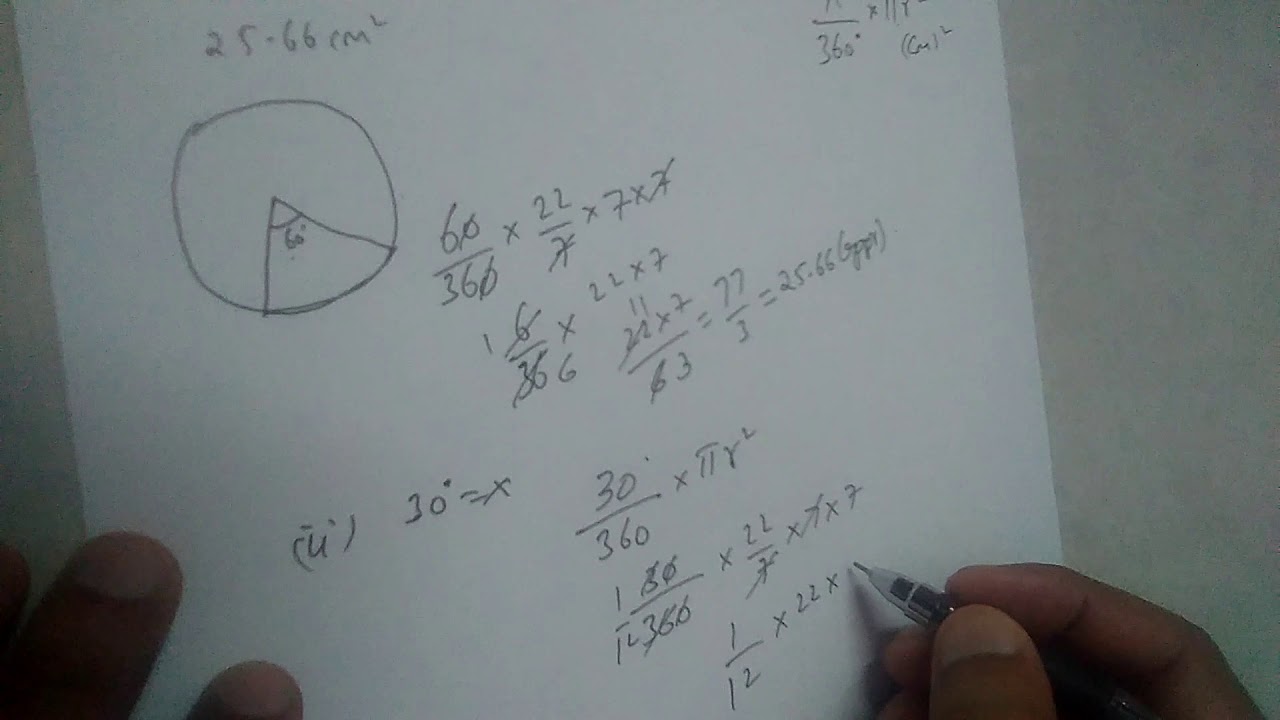 25.66 cm²
/360° × πr²
(cm)²
60°
60/360 × 22/7 × 7 × 7
1 6/36 6 × 22 × 7
11 22 × 7 / 6 3 = 77/3 = 25.66 (appx)
(ii) 30° = x 30°/360 × πr²
1 30/12 360 × 22/7 × 7 × 7
1/12 × 22 ×